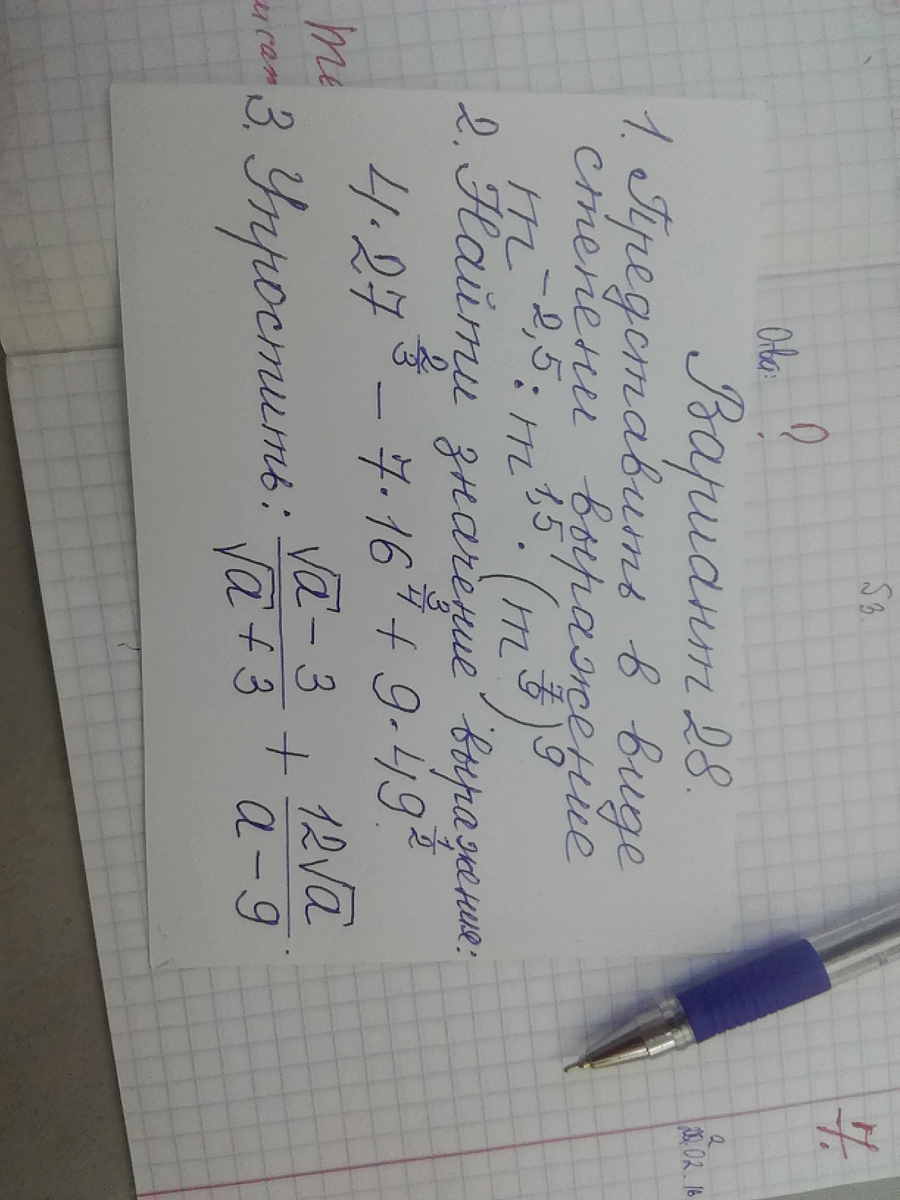 Вариант 28.
1. Представить в виде
степени выражение
m^{-2,5} : m^{1,5} · (m^{7/9})^9
2. Найти значение выражения:
4·27^{2/3} − 7·16^{3/4} + 9·49^{1/2}.
3. Упростить: \frac{√a − 3}{√a + 3} + \frac{12√a}{a − 9}.